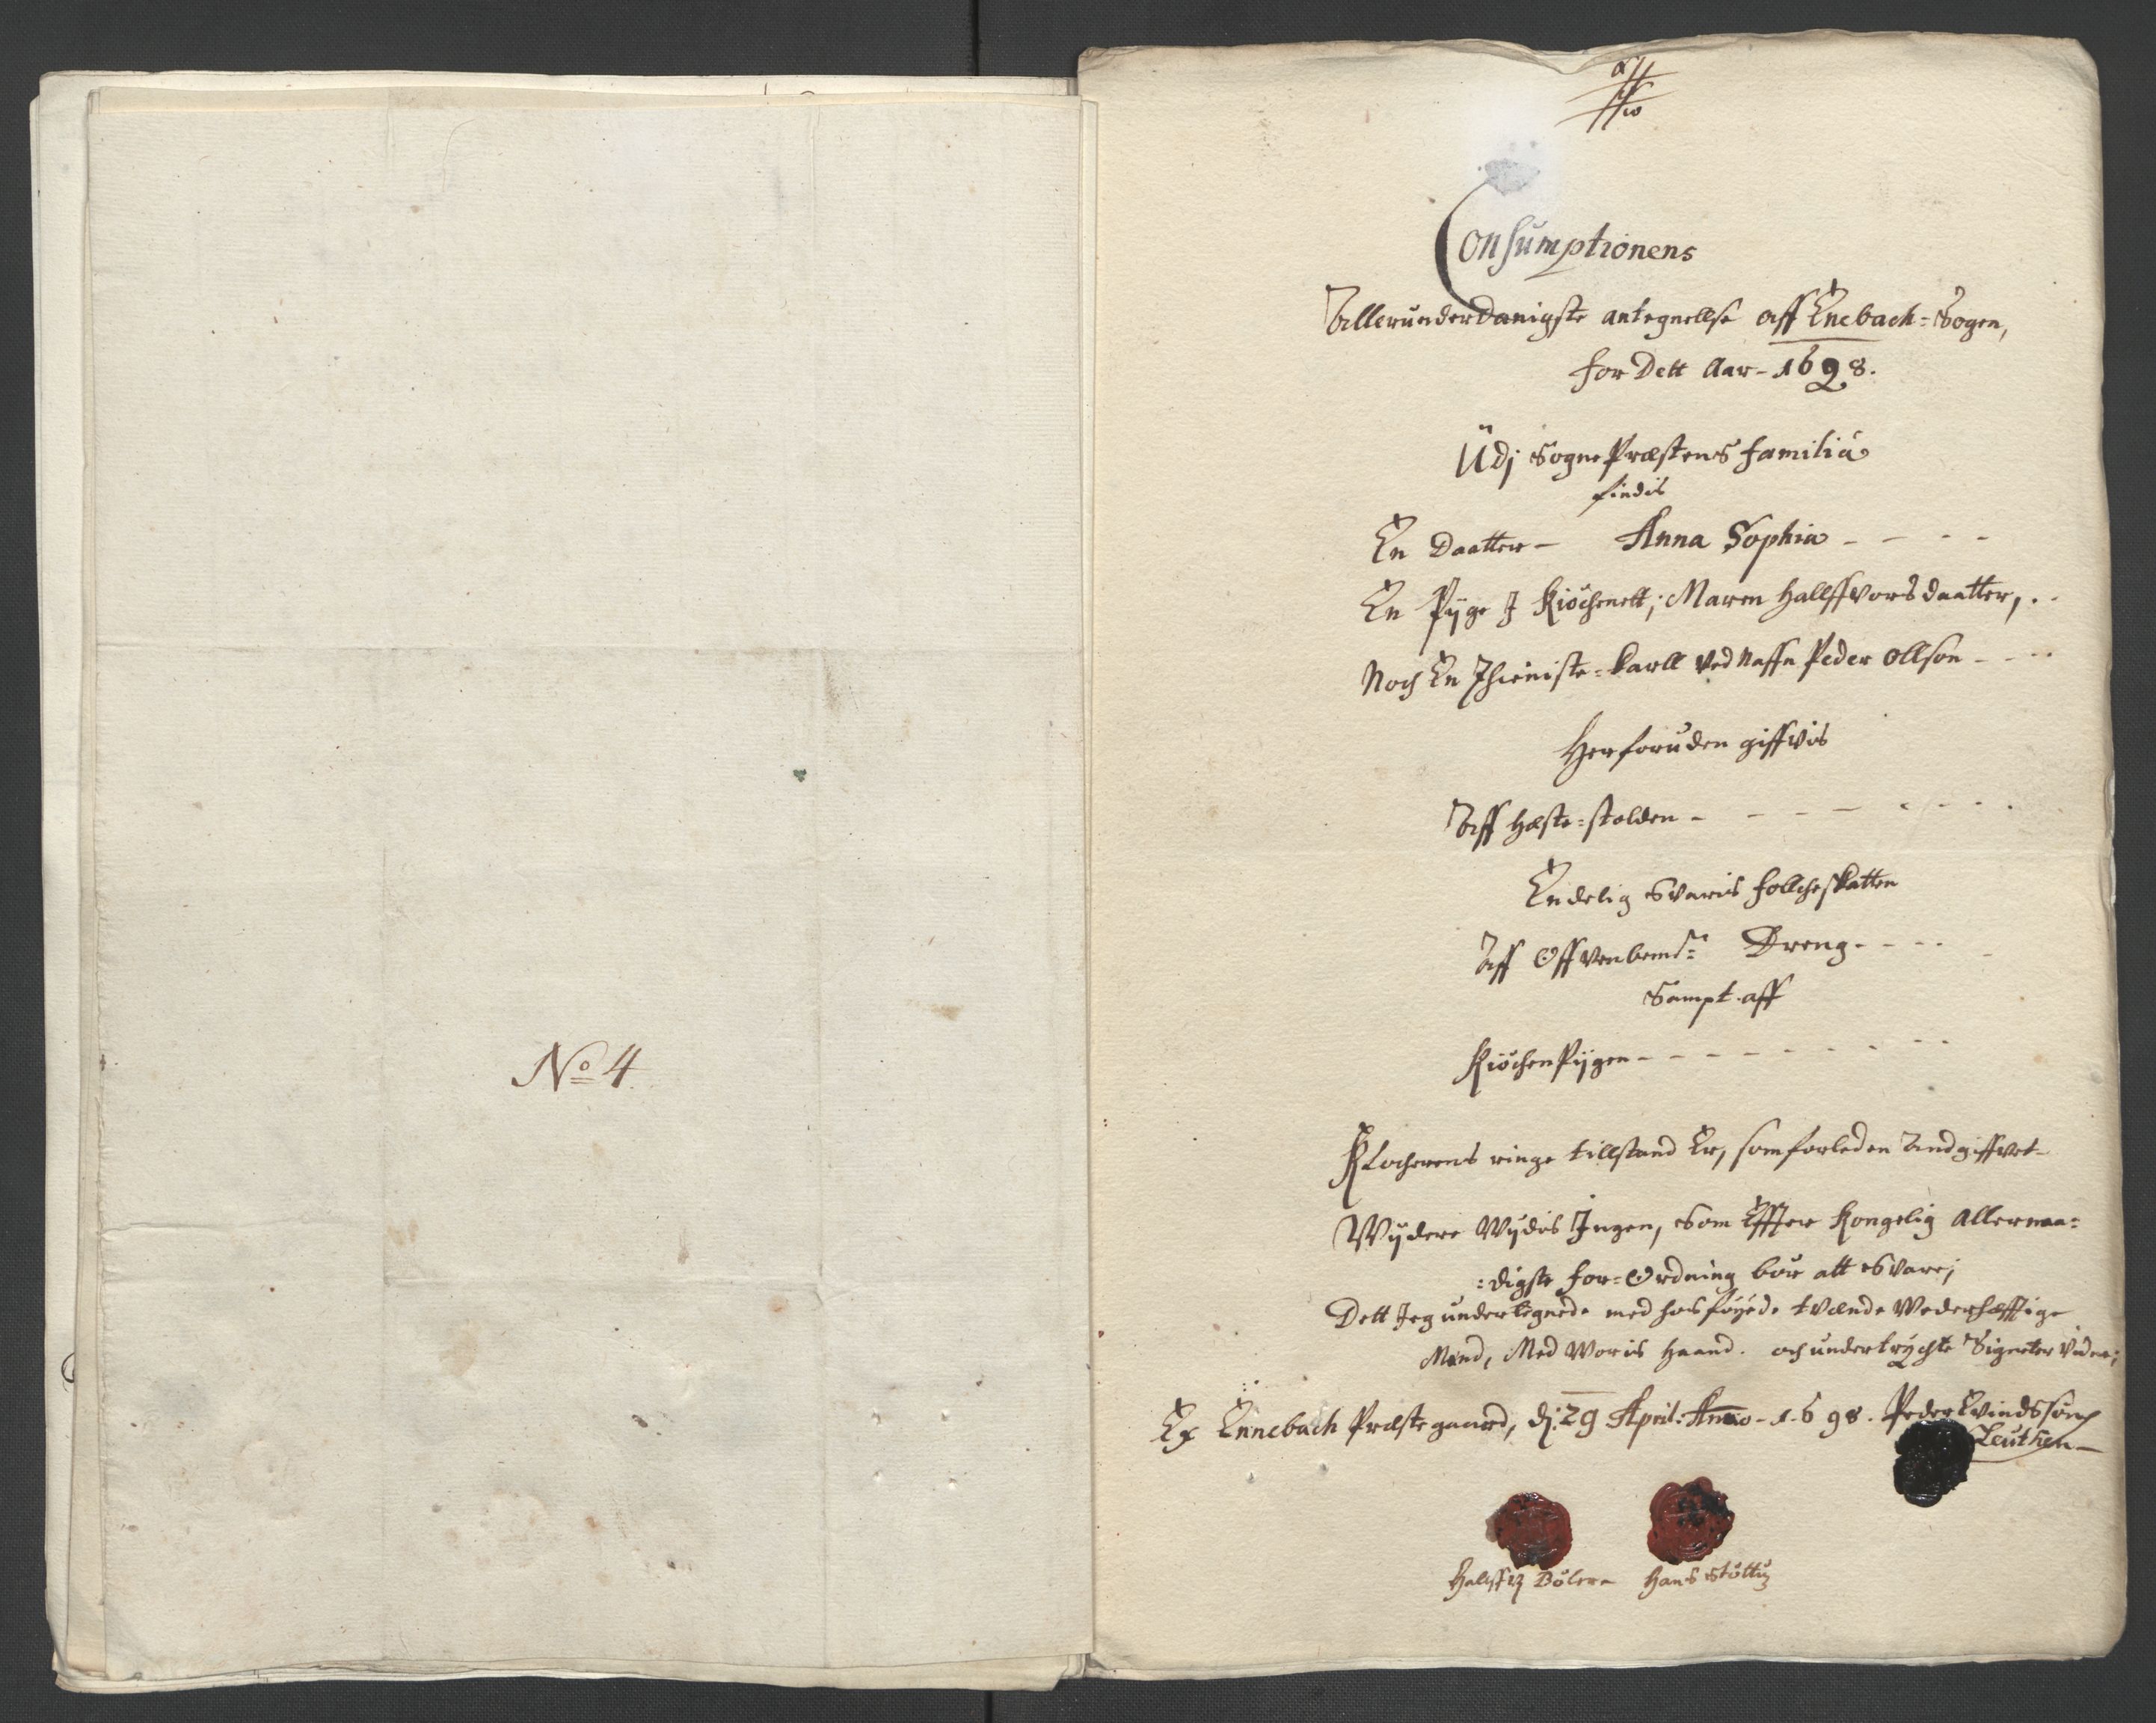 No 4
Consumptionens
Allerunderdanigste antegnellse aff Enebach=Sogen,
for Dett Aar - 1698.
Udj Sogne Præstens familia
findis
En Daatter - Anna Sophia - - - -
En Pige J Kiöchenett; Maren Hallffvors daatter, . .
Noch En Thieniste=karll ved Naffn Peder Ollsön - - - -
Herforuden giffvis
Aff Hæste=stalden - - - - - - - -
Endelig svaris follcheskatten
Aff Offvenbemte Dreng - - - -
Sampt aff
Kiöchen Pijgen - - - - - - - - -
Klocherens ringe tillstand Er, som forleden Andgiffvet -
Wijdere Wijdes Ingen, som Effter Kongelig Allernaa=
:digste for=Ordning bör att svare;
Dett Jeg undertegnede med hosföyede tvende Wederhæfftige
Mænd, Med Woris Haand. och undertrychte Signeter Vidner;
Ex Ennebach Præstegaard, dj: 29 April: Anno - 1698. Peder Evindssön
Leuthen -
Halffvor Böler Hans Stöttu